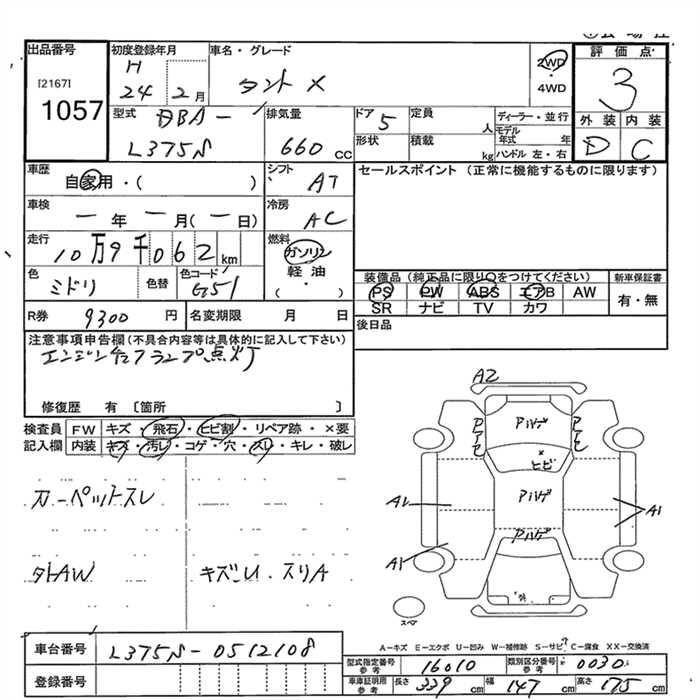 出品番号
[2167]
1057
初度登録年月
H
24 2月
車名・グレード
タント X
2WD
・
4WD
評価点
3
外装 内装
D C
型式 DBA-
L375S
排気量
660 cc
ドア 5
形状
定員 人
積載 kg
ディーラー・並行
モデル年式 年
ハンドル 左・右
車歴
自家用・( )
シフト
AT
セールスポイント (正常に機能するものに限ります)
車検
一年一月(一日)
冷房
AC
走行
10万9千062km
燃料
ガソリン
軽油
( )
色
ミドリ
色替
色コード
G51
装備品(純正品に限り〇をつけてください)
PS PW ABS エアB AW
SR ナビ TV カワ
新車保証書
有・無
R券 9300 円
名変期限 月 日
後日品
注意事項申告欄(不具合内容等は具体的に記入して下さい)
エンジンチェックランプ点灯
修復歴 有 〔箇所 〕
検査員 FW キズ・飛石・ヒビ割・リペア跡・×要
記入欄 内装 キズ・汚レ・コゲ・穴・スレ・キレ・破レ
カーペットスレ
外AW キズU.スリA
A2
Pハゲ
ヒビ
Pハゲ
Pハゲ
A1 A1
A1
スペア
A-キズ E-エクボ U-凹み W-補修跡 S-サビ C-腐食 XX-交換済
車台番号 L375S-0512108
登録番号
型式指定番号 参考 16010
類別区分番号 参考 0030
車庫証明用 参考 長さ 339 cm 幅 147 cm 高さ 175 cm